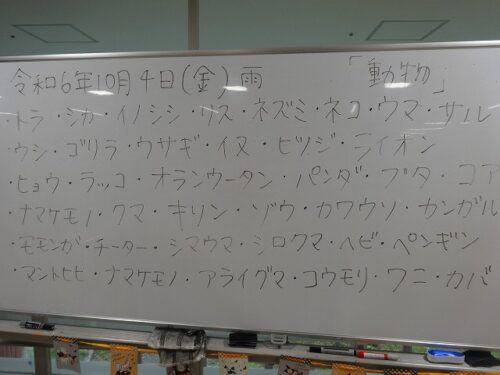 令和6年10月4日(金)雨 「動物」
・トラ・シカ・イノシシ・リス・ネズミ・ネコ・ウマ・サル
・ウシ・ゴリラ・ウサギ・イヌ・ヒツジ・ライオン
・ヒョウ・ラッコ・オランウータン・パンダ・ブタ・コア
・ナマケモノ・クマ・キリン・ゾウ・カワウソ・カンガル
・モモンガ・チーター・シマウマ・シロクマ・ヘビ・ペンギン
・マントヒヒ・ナマケモノ・アライグマ・コウモリ・ワニ・カバ